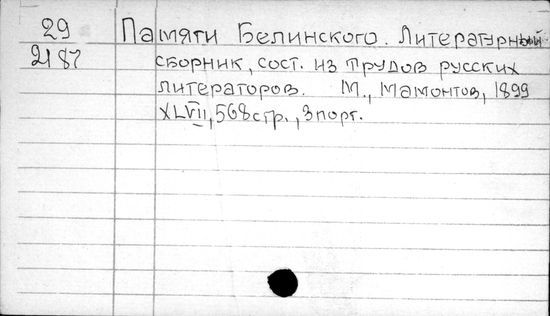 29 Памяти Белинского. Литературный
2187 сборник, сост. из трудов русских
литераторов. М., Мамонтов, 1899
XLVII, 568 стр., 3 порт.